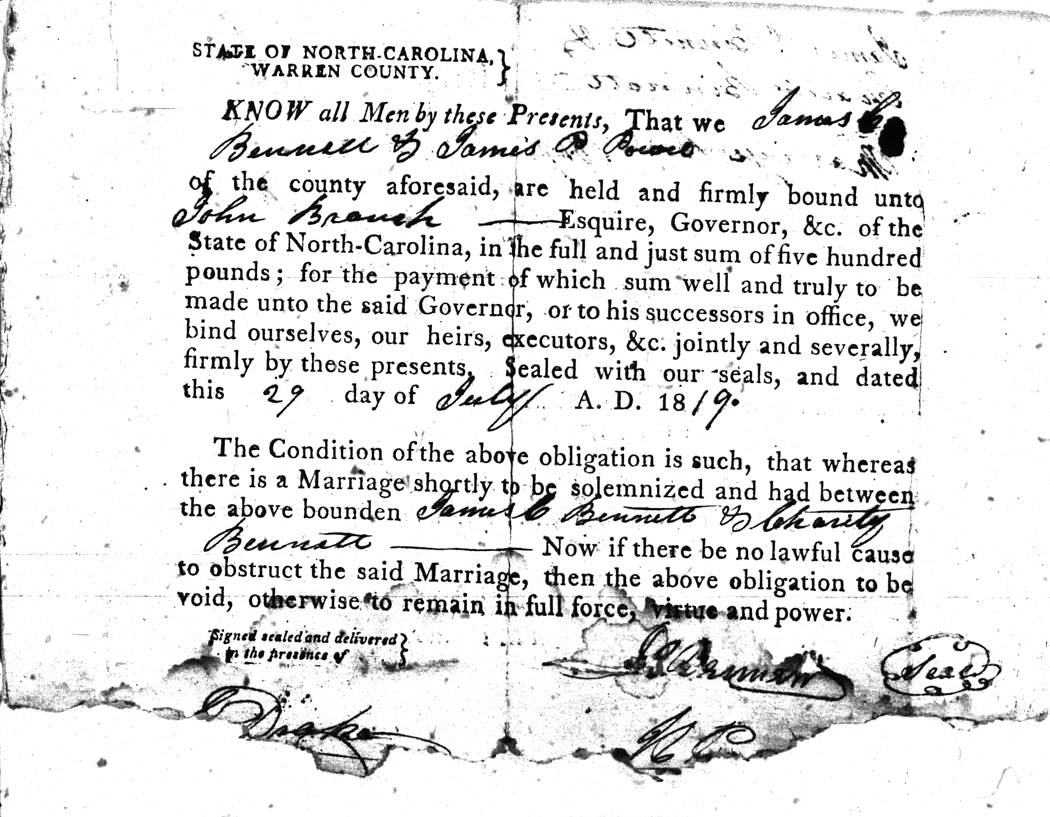 STATE OF NORTH-CAROLINA,
WARREN COUNTY.
KNOW all Men by these Presents, That we James C
Bennett & James P
of the county aforesaid, are held and firmly bound unto
John Branch Esquire, Governor, &c. of the
State of North-Carolina, in the full and just sum of five hundred
pounds; for the payment of which sum well and truly to be
made unto the said Governor, or to his successors in office, we
bind ourselves, our heirs, executors, &c. jointly and severally,
firmly by these presents. Sealed with our seals, and dated
this 29 day of July A. D. 1819.
The Condition of the above obligation is such, that whereas
there is a Marriage shortly to be solemnized and had between
the above bounden James C Bennett & Charity
Bennett Now if there be no lawful cause
to obstruct the said Marriage, then the above obligation to be
void, otherwise to remain in full force, virtue and power.
Signed sealed and delivered
in the presence of
Seal
Drake